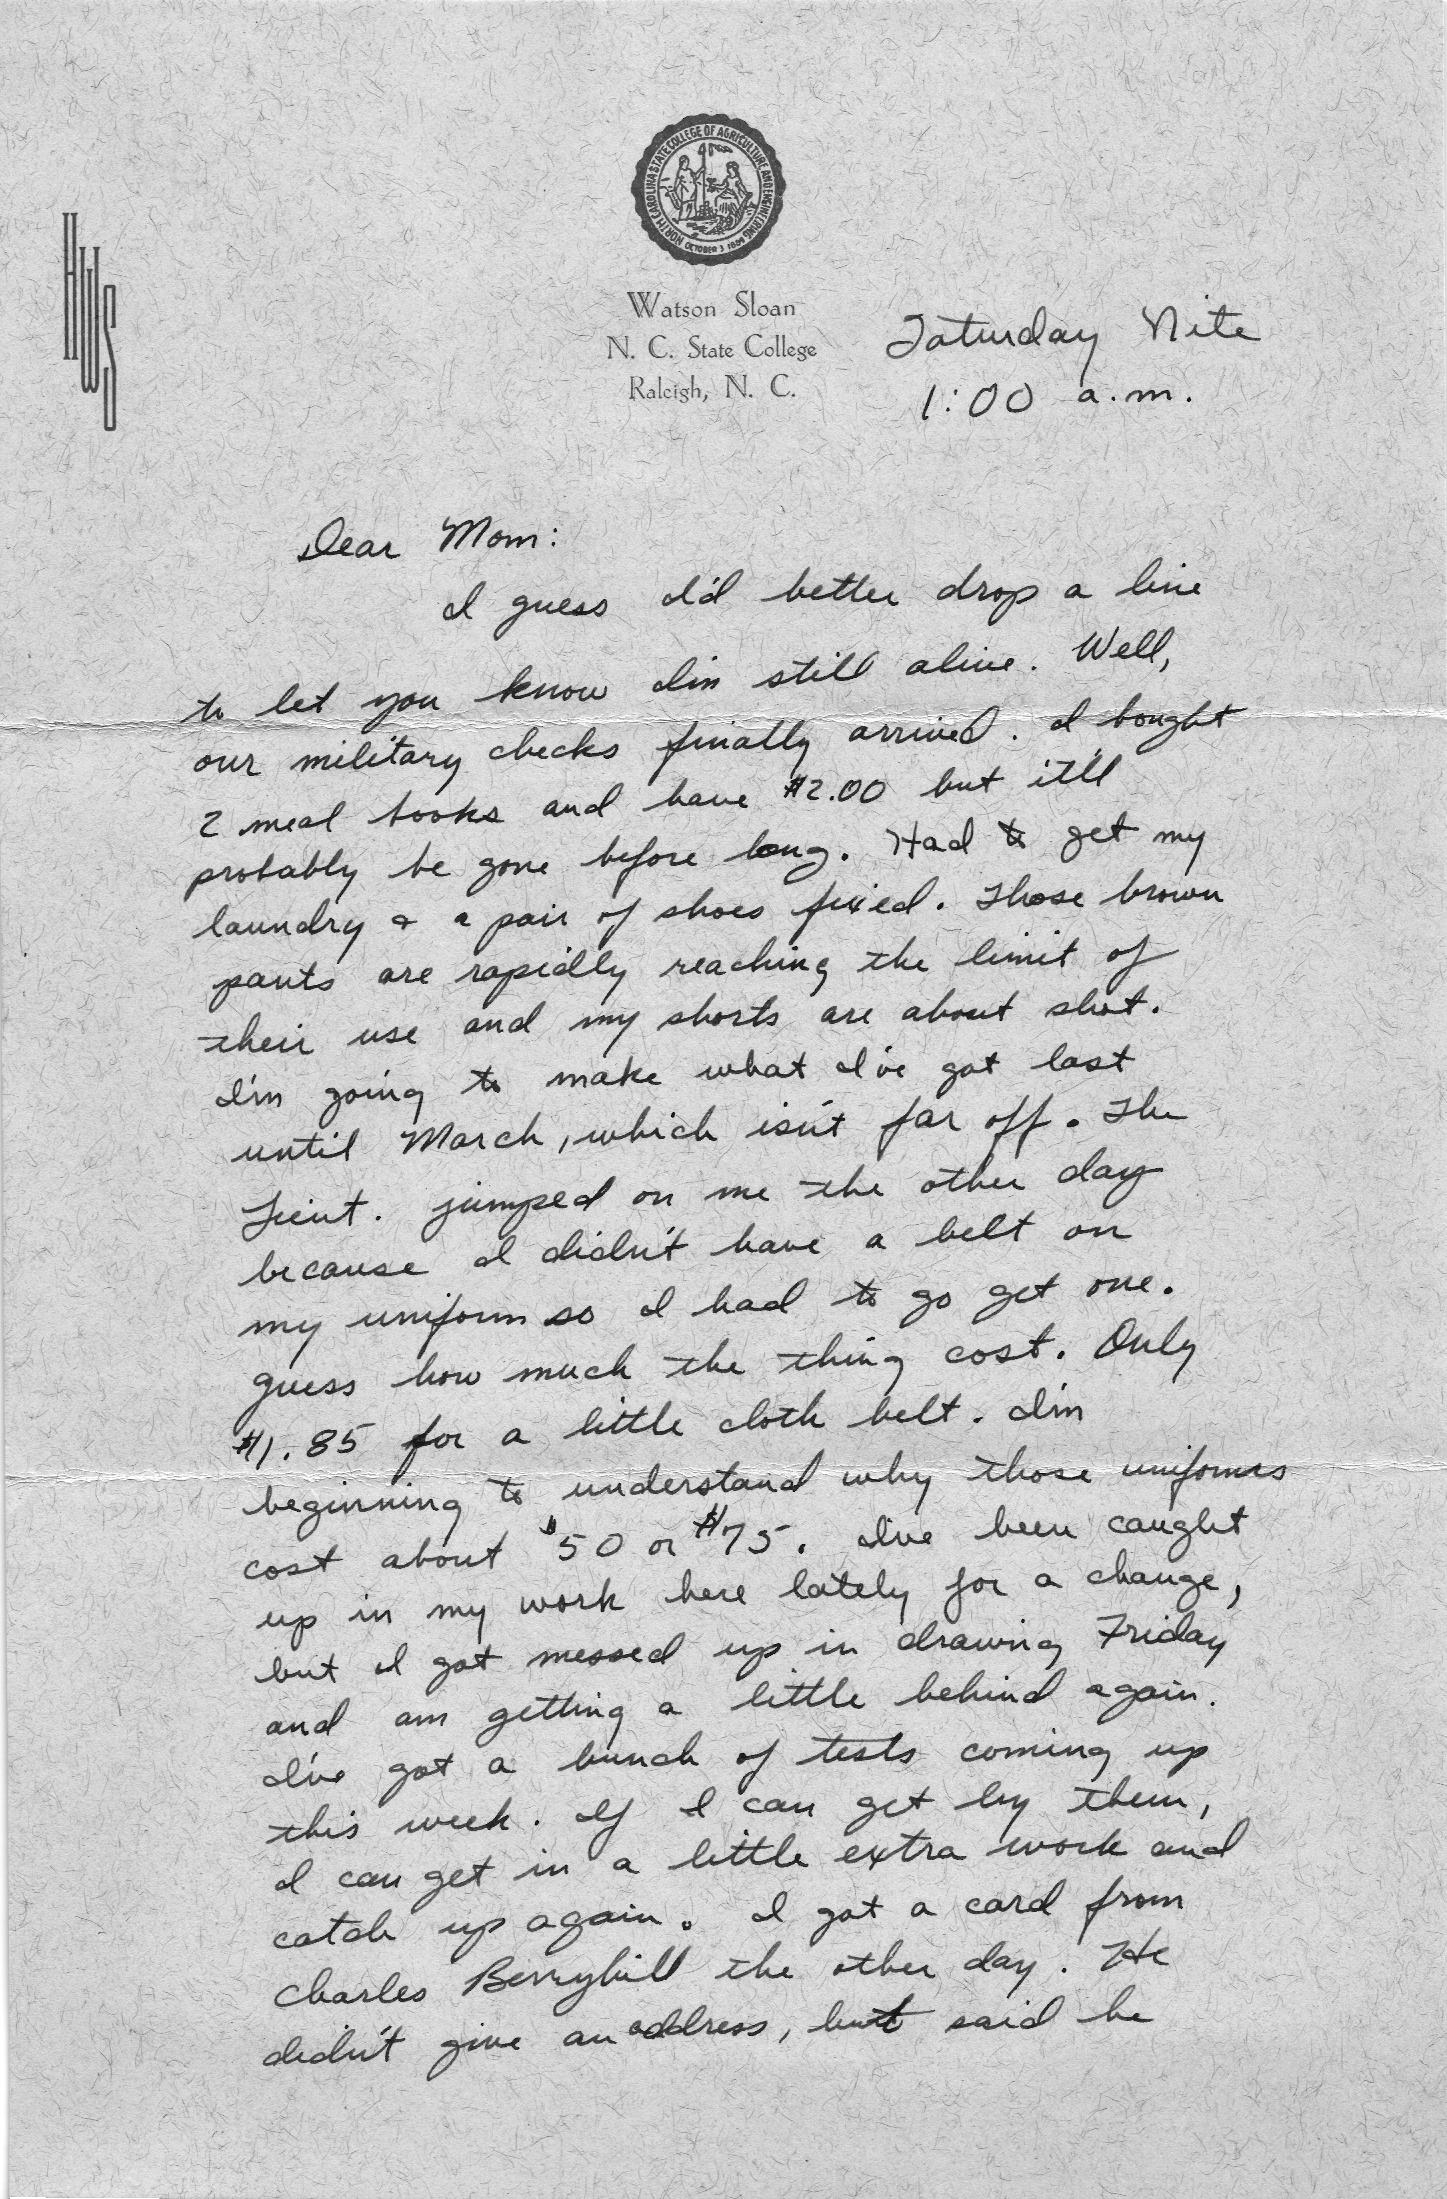 NORTH CAROLINA STATE COLLEGE OF AGRICULTURE AND ENGINEERING
OCTOBER 3 1889
HWS
Watson Sloan
N. C. State College
Raleigh, N. C.
Saturday Nite
1:00 a.m.
Dear Mom:
I guess I'd better drop a line
to let you know I'm still alive. Well,
our military checks finally arrived. I bought
2 meal books and have $2.00 but it'll
probably be gone before long. Had to get my
laundry & a pair of shoes fixed. Those brown
pants are rapidly reaching the limit of
their use and my shorts are about shot.
I'm going to make what I've got last
until March, which isn't far off. The
Lieut. jumped on me the other day
because I didn't have a belt on
my uniform so I had to go get one.
guess how much the thing cost. Only
$1.85 for a little cloth belt. I'm
beginning to understand why those uniforms
cost about $50 or $75. I've been caught
up in my work here lately for a change,
but I got messed up in drawing Friday
and am getting a little behind again.
I've got a bunch of tests coming up
this week. If I can get by them,
I can get in a little extra work and
catch up again. I got a card from
Charles Berryhill the other day. He
didn't give an address, but said he